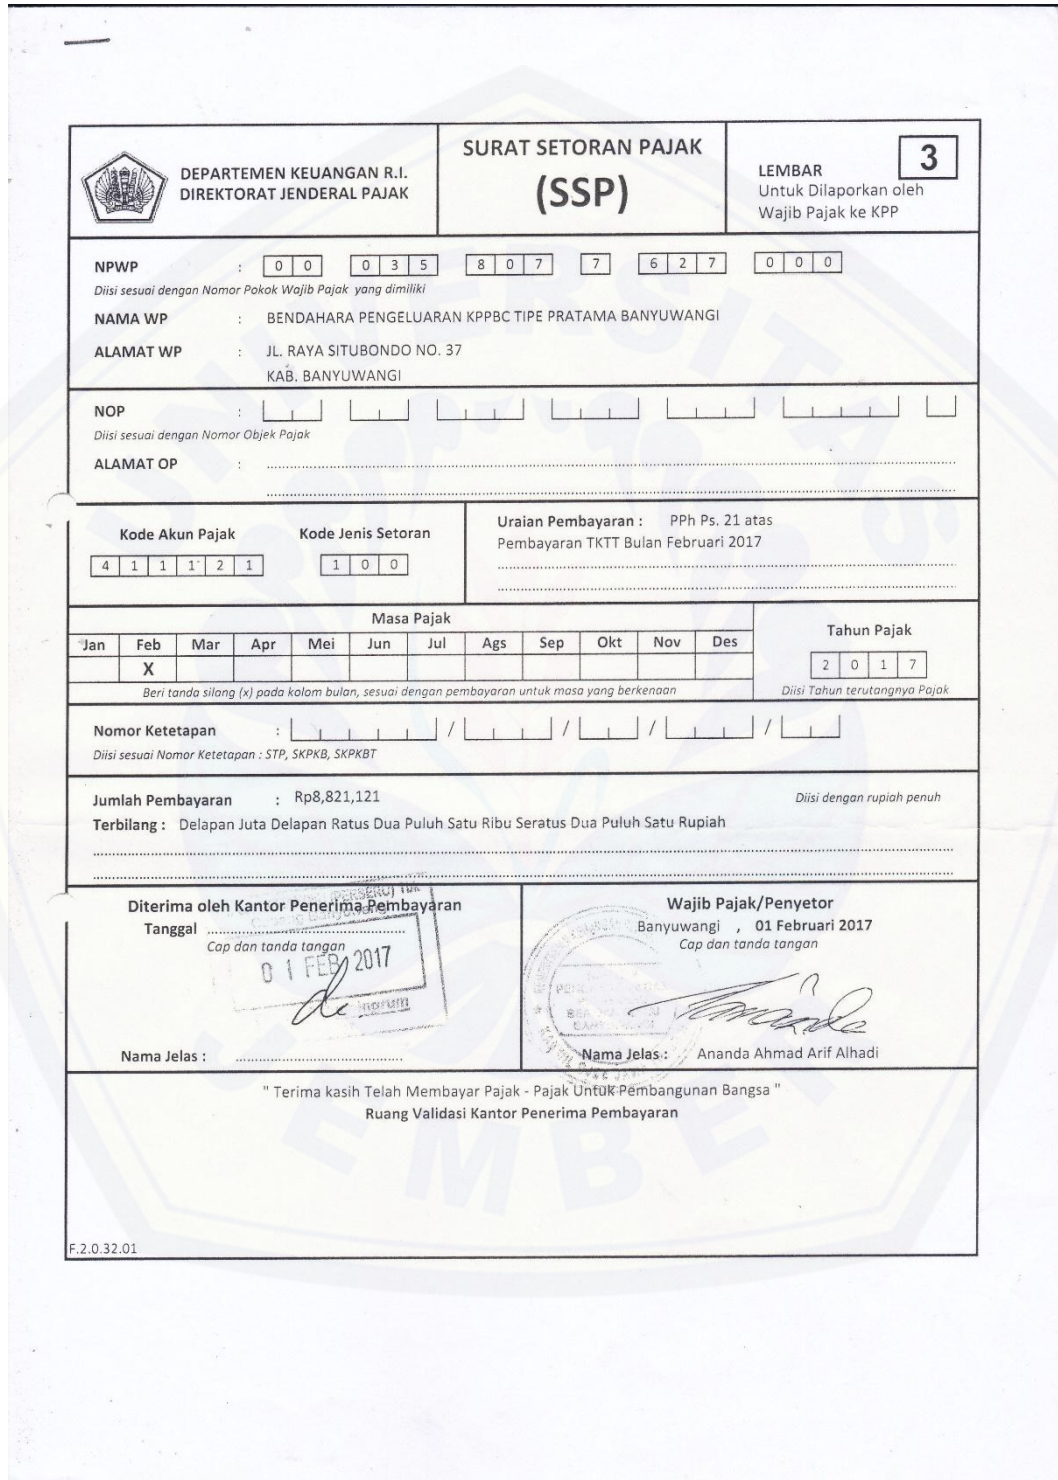 DEPARTEMEN KEUANGAN R.I.
DIREKTORAT JENDERAL PAJAK
SURAT SETORAN PAJAK
(SSP)
LEMBAR 3
Untuk Dilaporkan oleh
Wajib Pajak ke KPP
NPWP : 0 0 0 3 5 8 0 7 7 6 2 7 0 0 0
Diisi sesuai dengan Nomor Pokok Wajib Pajak yang dimiliki
NAMA WP : BENDAHARA PENGELUARAN KPPBC TIPE PRATAMA BANYUWANGI
ALAMAT WP : JL. RAYA SITUBONDO NO. 37
KAB. BANYUWANGI
NOP :
Diisi sesuai dengan Nomor Objek Pajak
ALAMAT OP :
Kode Akun Pajak Kode Jenis Setoran
4 1 1 1 2 1 1 0 0
Uraian Pembayaran : PPh Ps. 21 atas
Pembayaran TKTT Bulan Februari 2017
Masa Pajak
Jan Feb Mar Apr Mei Jun Jul Ags Sep Okt Nov Des
X
Beri tanda silang (x) pada kolom bulan, sesuai dengan pembayaran untuk masa yang berkenaan
Tahun Pajak
2 0 1 7
Diisi Tahun terutangnya Pajak
Nomor Ketetapan : / / / /
Diisi sesuai Nomor Ketetapan : STP, SKPKB, SKPKBT
Jumlah Pembayaran : Rp8,821,121 Diisi dengan rupiah penuh
Terbilang : Delapan Juta Delapan Ratus Dua Puluh Satu Ribu Seratus Dua Puluh Satu Rupiah
Diterima oleh Kantor Penerima Pembayaran
Tanggal
Cap dan tanda tangan
01 FEB 2017
Nama Jelas :
Wajib Pajak/Penyetor
Banyuwangi , 01 Februari 2017
Cap dan tanda tangan
Nama Jelas : Ananda Ahmad Arif Alhadi
" Terima kasih Telah Membayar Pajak - Pajak Untuk Pembangunan Bangsa "
Ruang Validasi Kantor Penerima Pembayaran
F.2.0.32.01
UNIVERSITAS
JEMBER